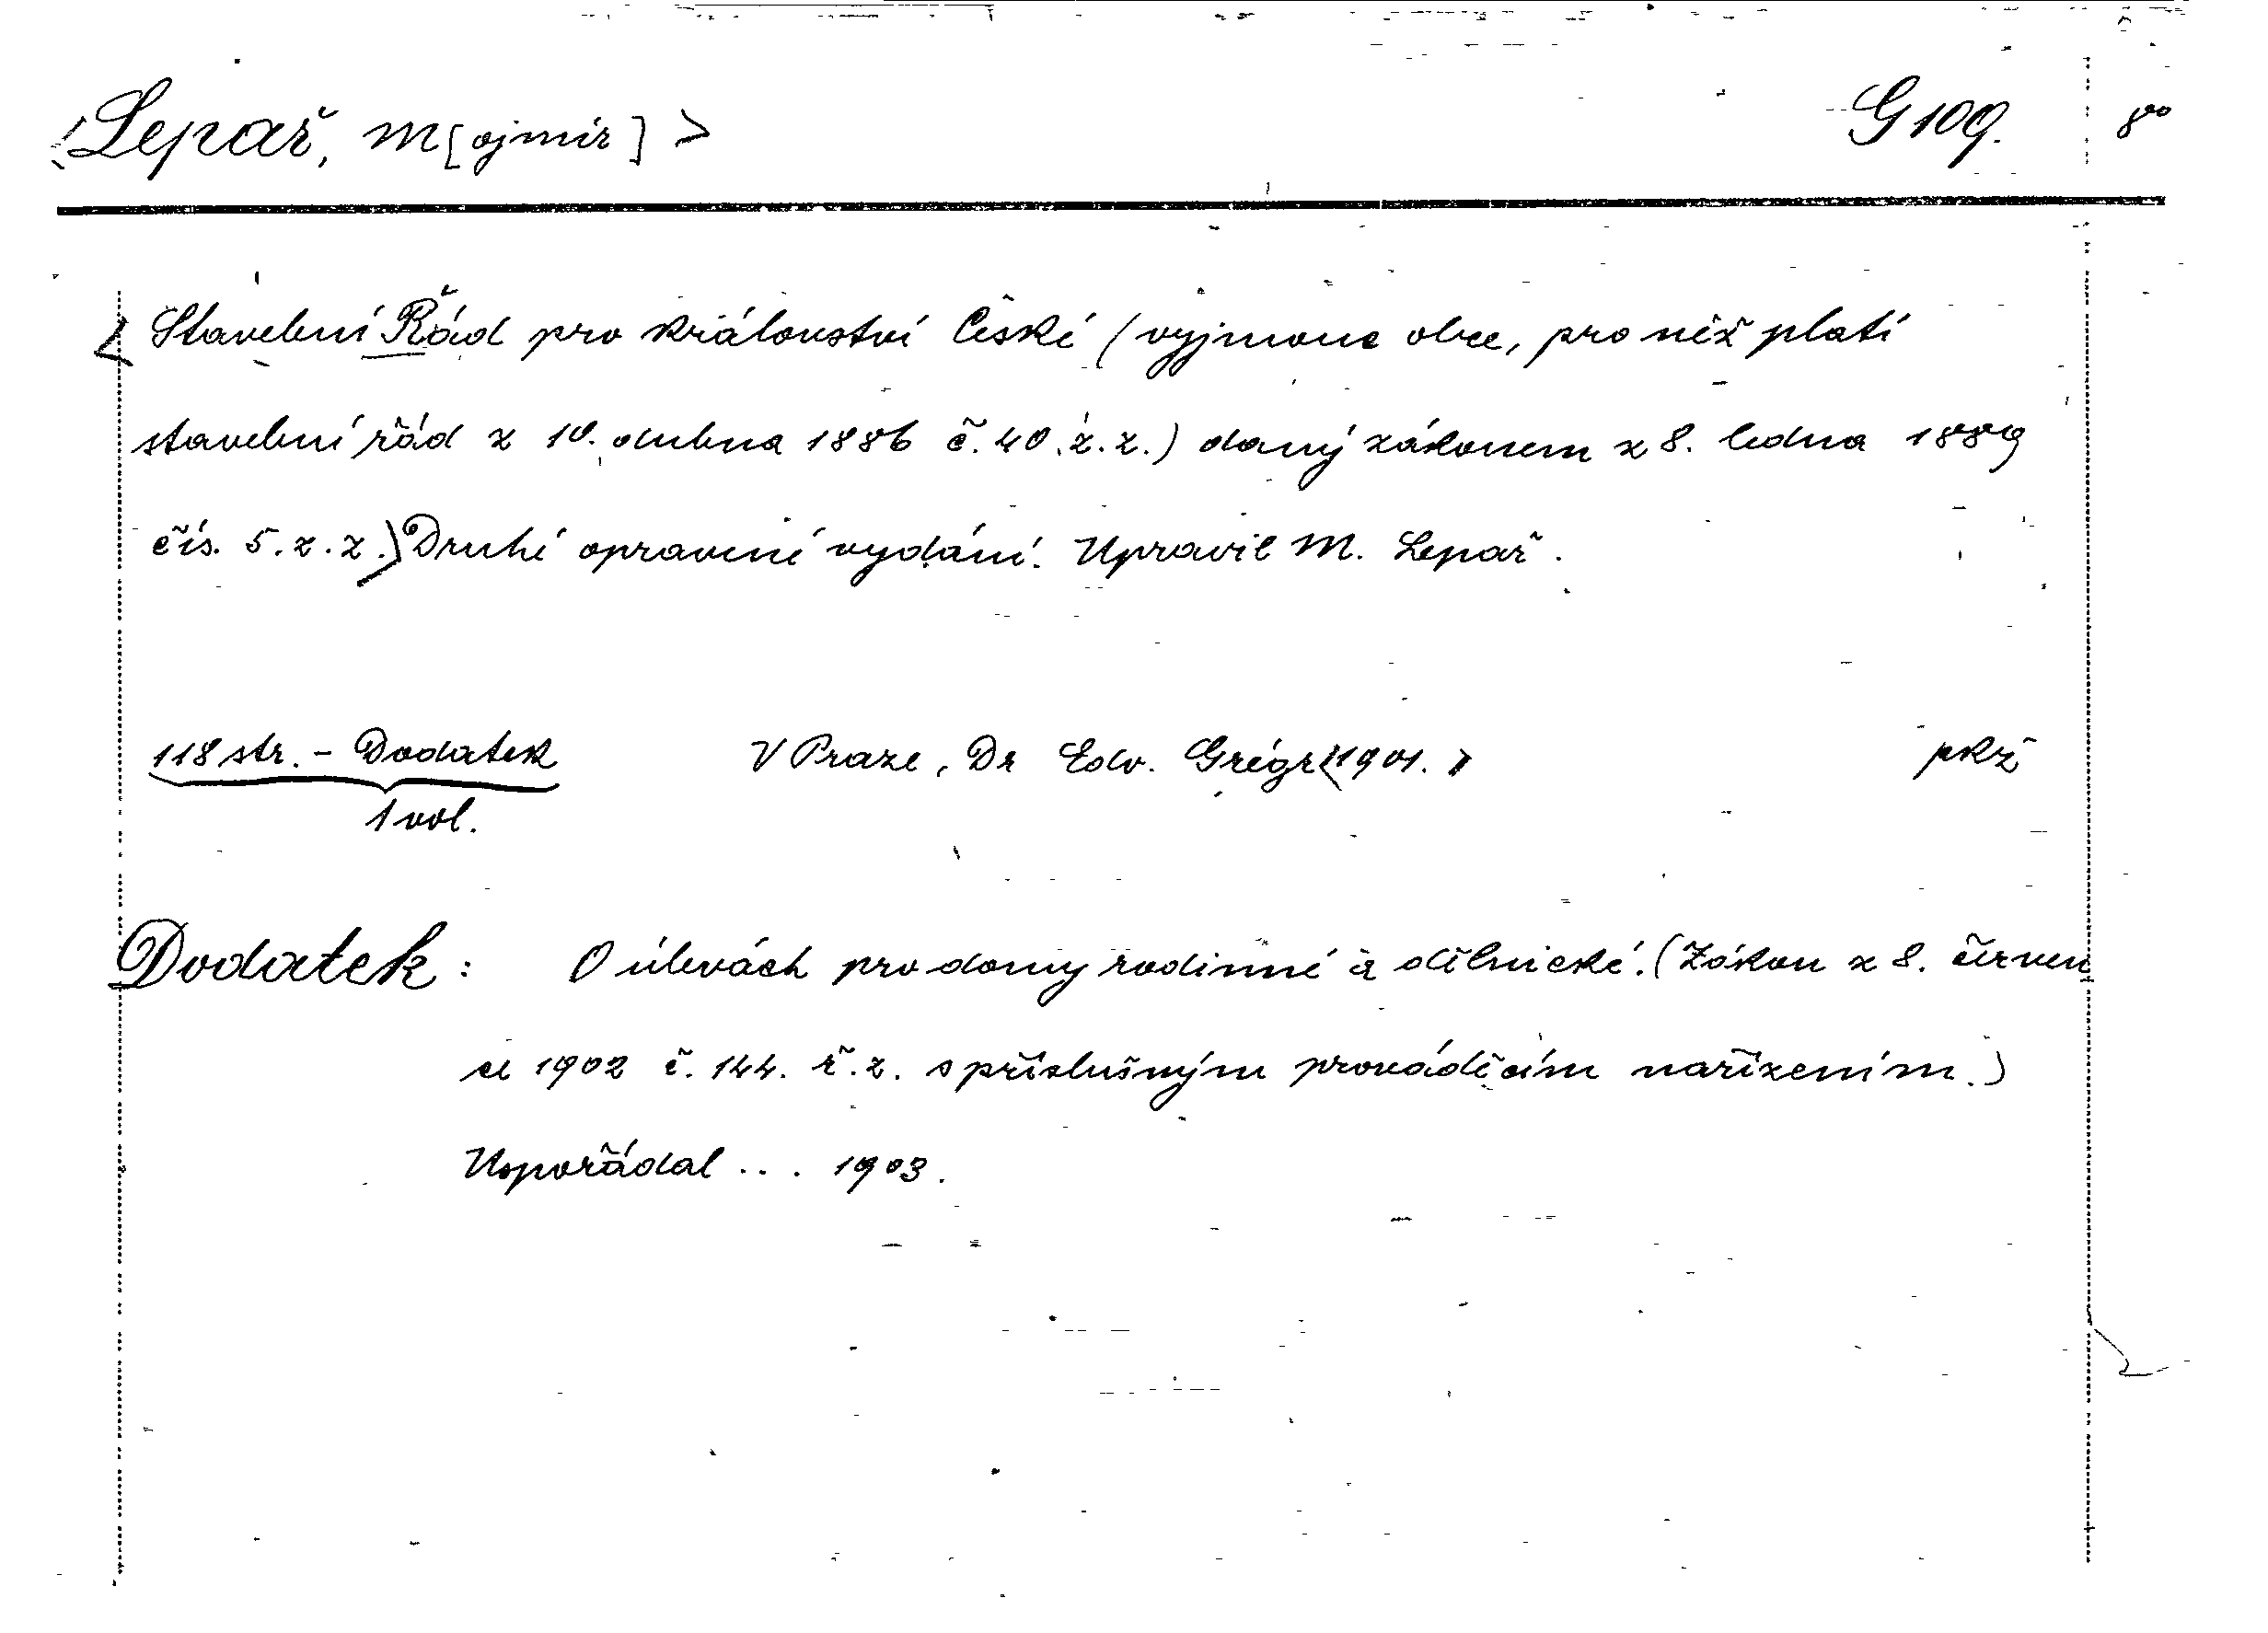 <Lepař, M[ojmír]> G 109. 8°
<Stavební Řád pro království České (vyjmouc obce, pro něž platí
stavební řád z 10. dubna 1886 č. 40. z. z.) daný zákonem z 8. ledna 1889
čís. 5. z. z.> Druhé opravené vydání. Upravil M. Lepař.
118 str. - Dodatek V Praze, Dr Edv. Grégr <1901.> pkž
1 vol.
Dodatek: O úlevách pro domy rodinné a dělnické. (Zákon z 8. červen
ce 1902 č. 144. ř. z. s příslušným prováděcím nařízením.)
Uspořádal ... 1903.